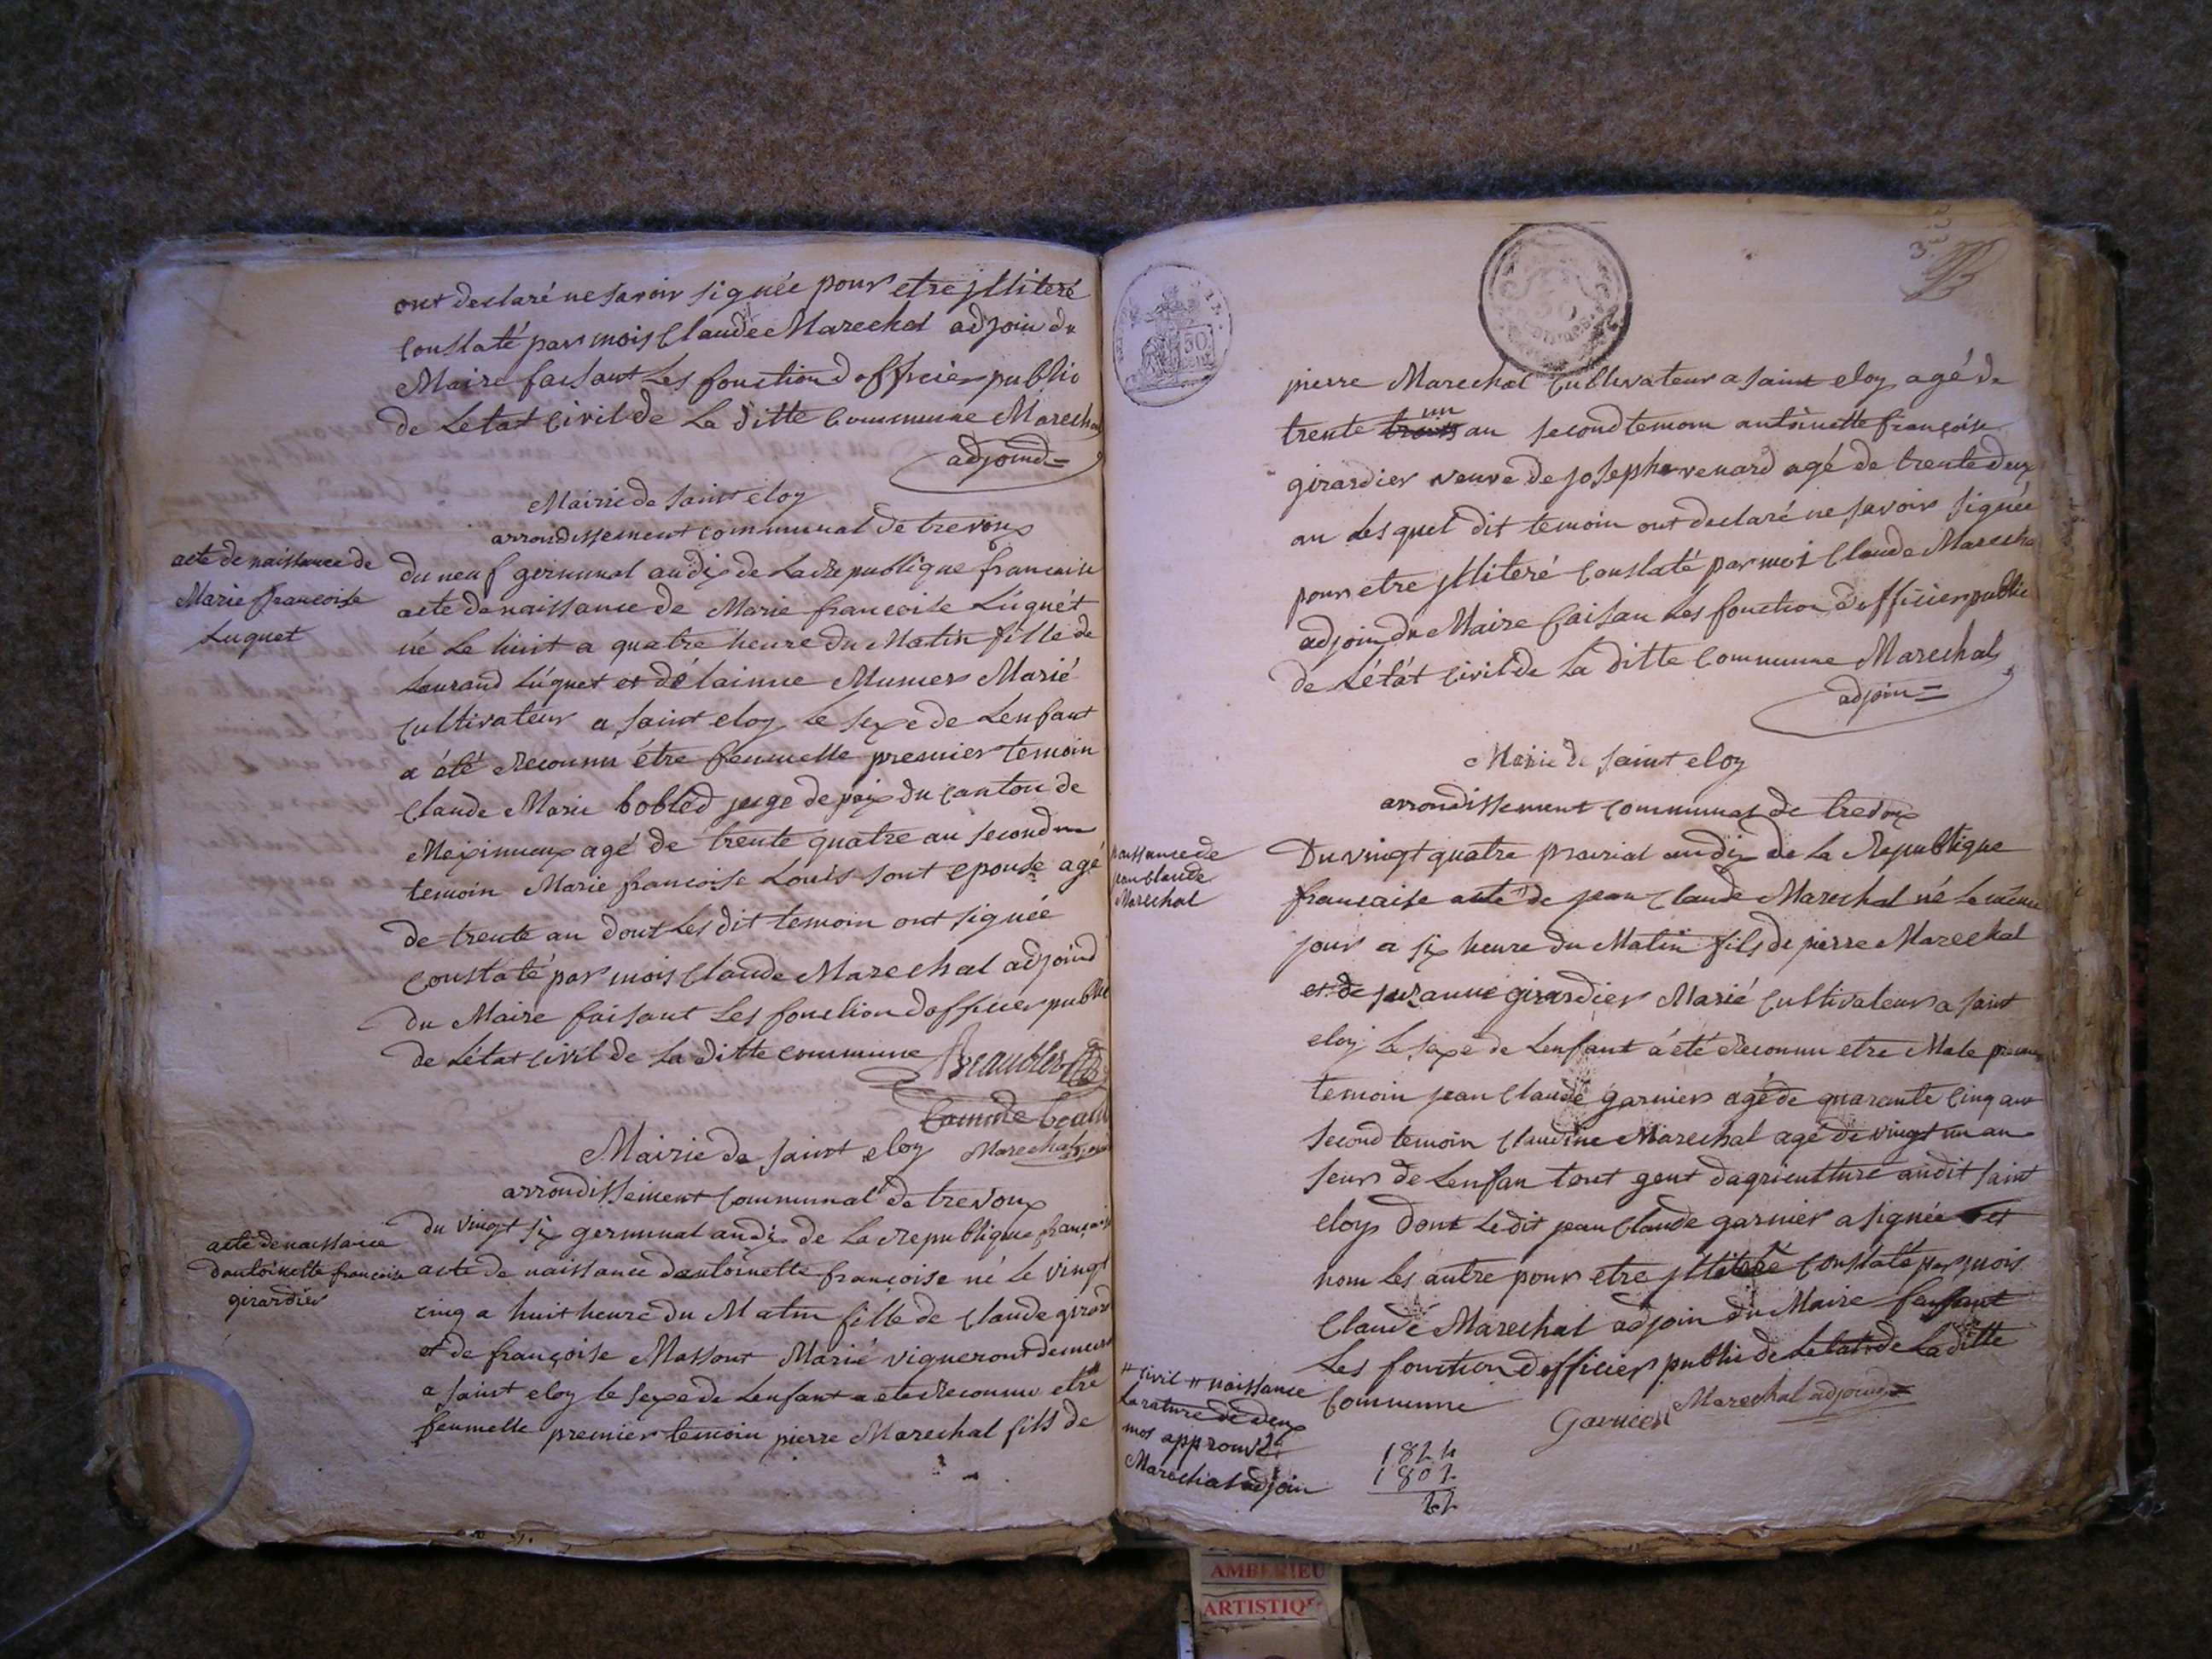 ont declaré ne savoir signée pour etre jlliteré
constaté par mois Claude Marechal adjoin du
Maire faisant Les fonction d officier public
de Letat Civil de La ditte Commune Marechal
adjoind
Mairie de saint eloy
arrondissement communal de trevoux
acte de naissance de
Marie francoise
Luquet
du neuf germinal an dix de La Republique francaise
acte de naissance de Marie francoise Luquét
né Le huit a quatre heure du Matin fille de
Laurand Lúquet et de Munier Marié
Cultivateur a saint eloy Le sexe de Lenfant
a été Reconnu étre femmelle premier temoin
Claude Marie bobled juge de paix du Canton de
Meximieux agé de trente quatre an second
temoin Marie francoise Louis sont epouse agé
de trente an dont Les dit temoin ont signée
Constaté par mois Claude Marechal adjoind
du Maire faisant Les fonction dofficier public
de Létat civil de La ditte commune
Marechal
Mairie de saint eloy
arrondissement Communal de trevoux
acte de naissance
dantoinette francoise
girardier
du vingt six germinal an dix de La Republique française
acte de naissance dantoinette françoise né Le vingt
cinq a huit heure du Matin fille de Claude
et de françoise Massont Marié vigneront
a saint eloy Le sexe de Lenfant a été Reconnu etre
femmelle premier temoin pierre Marechal fils de
50
pierre Marechal Cultivateur a saint eloy agé de
trente trois un an second temoin antoinette françoise
girardier veuve de joseph venard agé de trente deux
an Les quel dit temoin ont declaré ne savoir signée
pour etre jlliteré Constaté par moi Claude Marechal
adjoin du Maire faisan Les fonction dofficier public
de Létát Civil de La ditte Commune Marechal
adjoin
Mairie de saint eloy
arrondissement Communal de trevoux
naissance de
jean Claude
Marechal
Du vingt quatre prairial an dix de La Republique
francaise acte " de jean Claude Marechal né Le meme
jour a six heure du Matin fils de pierre Marechal
et de suzanne girardier Marié Cultivateur a saint
eloy Le sexe de Lenfant a été Reconnu etre Male premier
temoin jean Claude garnier agé de quarante Cinq an
second temoin Claudine Marechal agé de vingt un an
seur de Lenfan tout gent dagriculture audit saint
eloy dont Ledit jean Claude garnier a signée et
nom Les autre pour etre jlliteré Constaté par mois
Claude Marechal adjoin du Maire faisant
Les fonction dofficier public de Letat de Laditte
Commune
Garnier Marechal adjoind
" civil " naissance
La rature de deux
mos approuvé
Marechal adjoin
1824
1802
22
AMBERIEU
ARTISTIQ